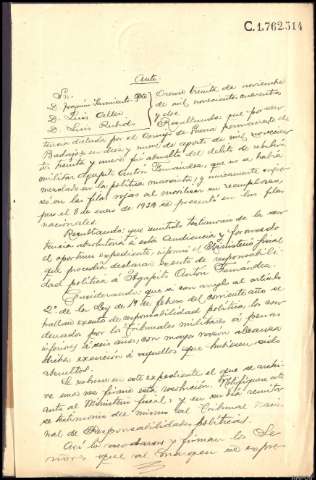 C.1.762.314
Auto
Sres.
D. Joaquín Sarmiento Pte
D. Luis
D. Luis Rubio
Orense treinta de noviembre
de mil novecientos cuarenta
y dos
Resultando que por sen-
tencia dictada por el Consejo de Guerra permanente de
Badajoz en diez y nueve de agosto de mil novecientos
treinta y nueve fue absuelto del delito de rebelión
militar Agapito Antón Fernández, que no se había
mezclado en la política marxista, y únicamente
en las filas rojas al movilizar su reemplazo,
pero el 8 de enero de 1939 se presentó en las filas
nacionales
Resultando que remitido testimonio de la sen-
tencia absolutoria a esta Audiencia y formado
el oportuno expediente, informó el Ministerio fiscal
que procedía declarar exento de responsabili-
dad política a Agapito Antón Fernández.
Considerando que con arreglo al artículo
2º de la Ley de 19 de febrero del corriente año se
hallan exentos de responsabilidad política los con-
denados por los Tribunales militares a penas
inferiores a seis años, con mayor razón alcanza
dicha exención a aquellos que hubiesen sido
absueltos.
Se sobresee este expediente el que se archi-
ve una vez firme esta resolución. Notifíquese este
auto al Ministerio fiscal, y en su día remítase
testimonio del mismo al Tribunal nacio-
nal de Responsabilidades políticas.
Así lo acordaron y firman los Se-
ñores que al margen se expre-